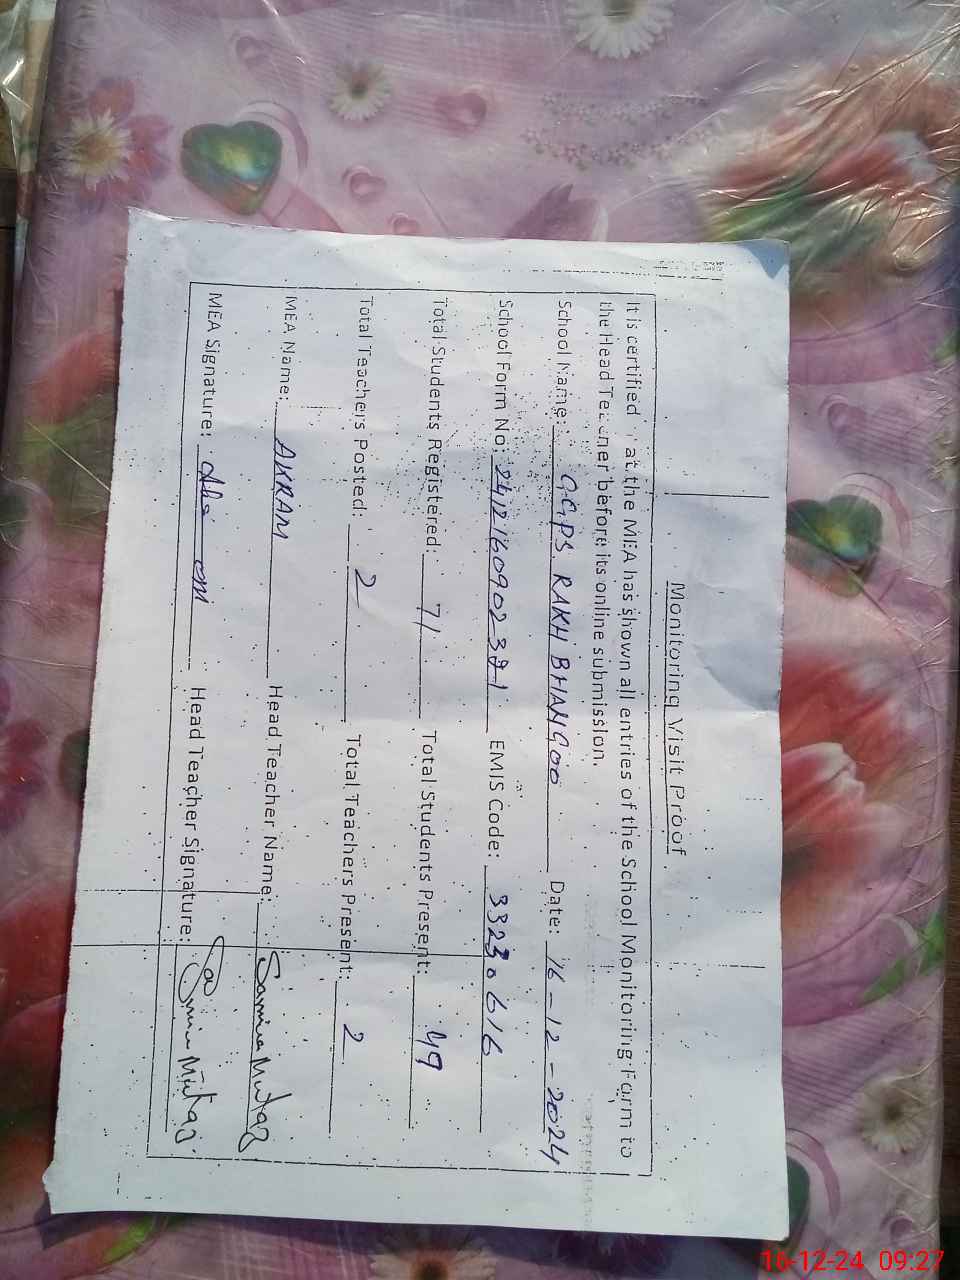 Monitoring Visit Proof
It is certified that the MEA has shown all entries of the School Monitoring Form to
the Head Teacher before its online submission.
School Name: GGPS RAKH BHANGOO Date: 16-12-2024
School Form No: EMIS Code: 33230616
Total Students Registered: 71 Total Students Present: 49
Total Teachers Posted: 2 Total Teachers Present: 2
MEA Name: AKRAM Head Teacher Name: Samina Mumtaz
MEA Signature: Head Teacher Signature: Samina Mumtaz
16-12-24 09:27